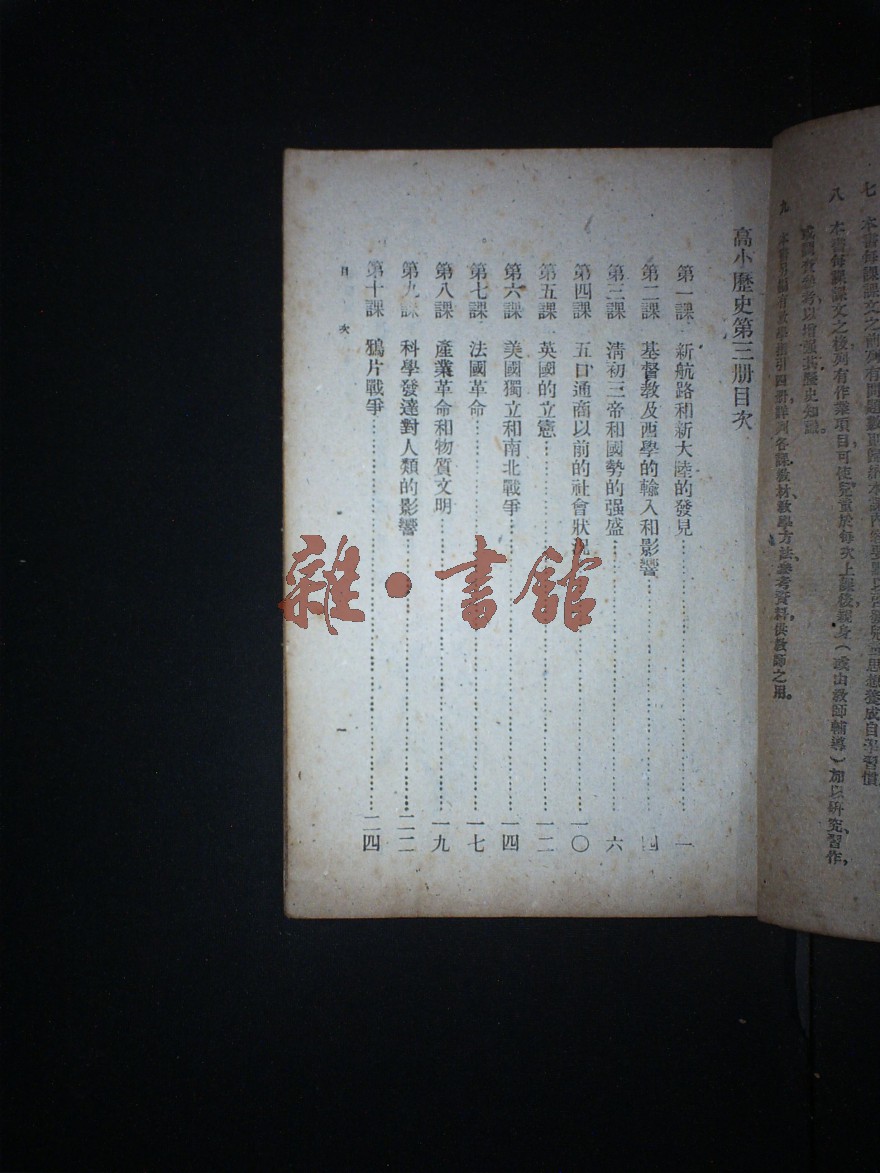 七 本書每課課文之前列有問題數則歸納本課內容要點以啓發兒童思想養成自學習慣
八 本書每課課文之後列有作業項目可使兒童於每次上課後親身(或由教師輔導)加以研究、習作,
或調教參考以增強其歷史知識。
九 本書另編有教學指引四冊詳列各課教材教學方法參考資料供教師之用。
高小歷史第三册目次
第一課 新航路和新大陸的發見 一
第二課 基督教及西學的輸入和影響 四
第三課 清初三帝和國勢的强盛 六
第四課 五口通商以前的社會狀況 一〇
第五課 英國的立憲 一二
第六課 美國獨立和南北戰爭 一四
第七課 法國革命 一七
第八課 產業革命和物質文明 一九
第九課 科學發達對人類的影響 二二
第十課 鴉片戰爭 二四
目次 一
雜·書館